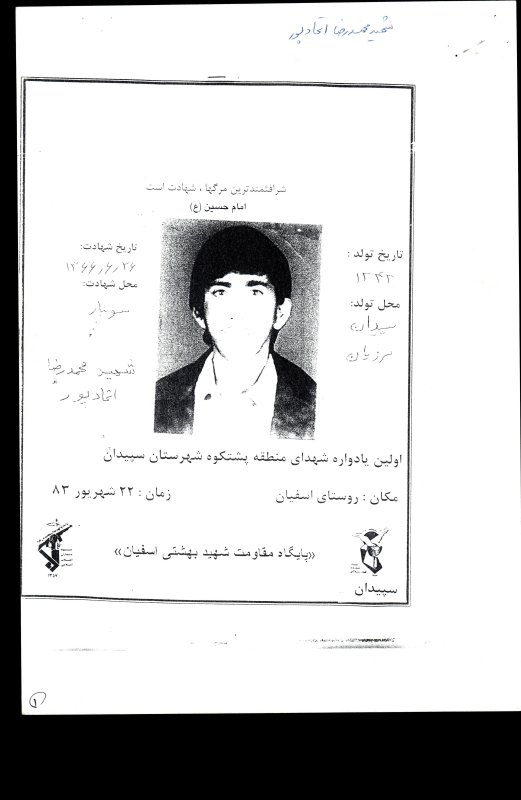 شهید محمدرضا اتحادپور
شرافتمندترین مرگها ، شهادت است
امام حسین (ع)
تاریخ تولد :
۱۳۴۳
محل تولد:
سپیدان
تاریخ شهادت:
۱۳۶۶/۶/۲۶
محل شهادت:
شهید محمدرضا
اولین یادواره شهدای منطقه پشتکوه شهرستان سپیدان
مکان : روستای اسفیان
زمان : ۲۲ شهریور ۸۳
«پایگاه مقاومت شهید بهشتی اسفیان»
۱۳۵۷
سپیدان
۱